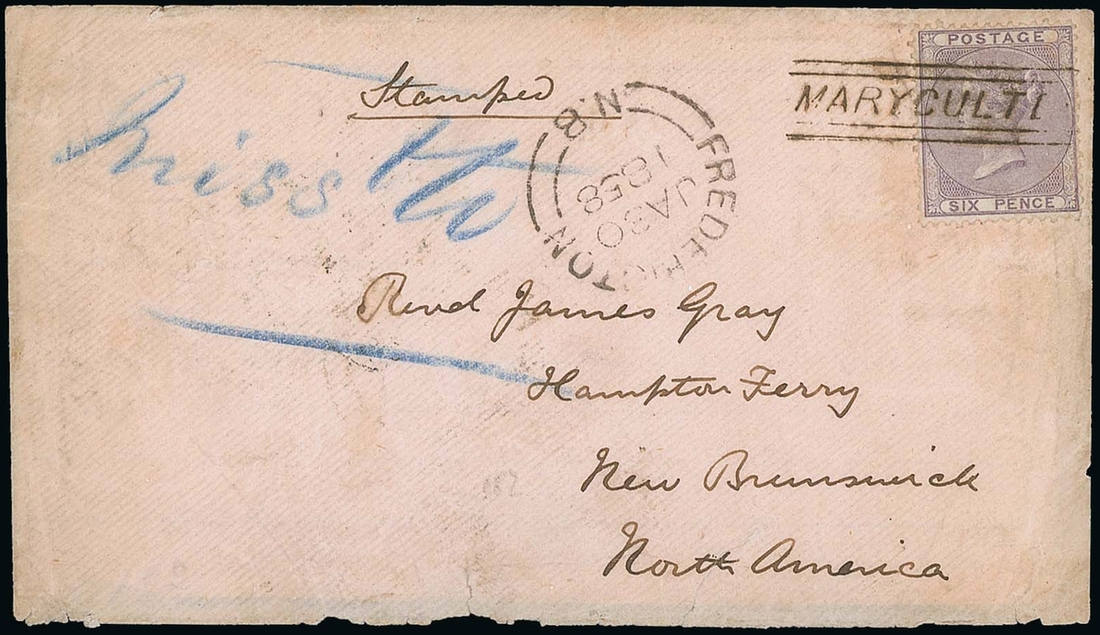 POSTAGE
SIX PENCE
MARYCULTI
Stamped
FREDERICTON N.B
JA 30
1858
Revd James Gray
Hampton Ferry
New Brunswick
North America